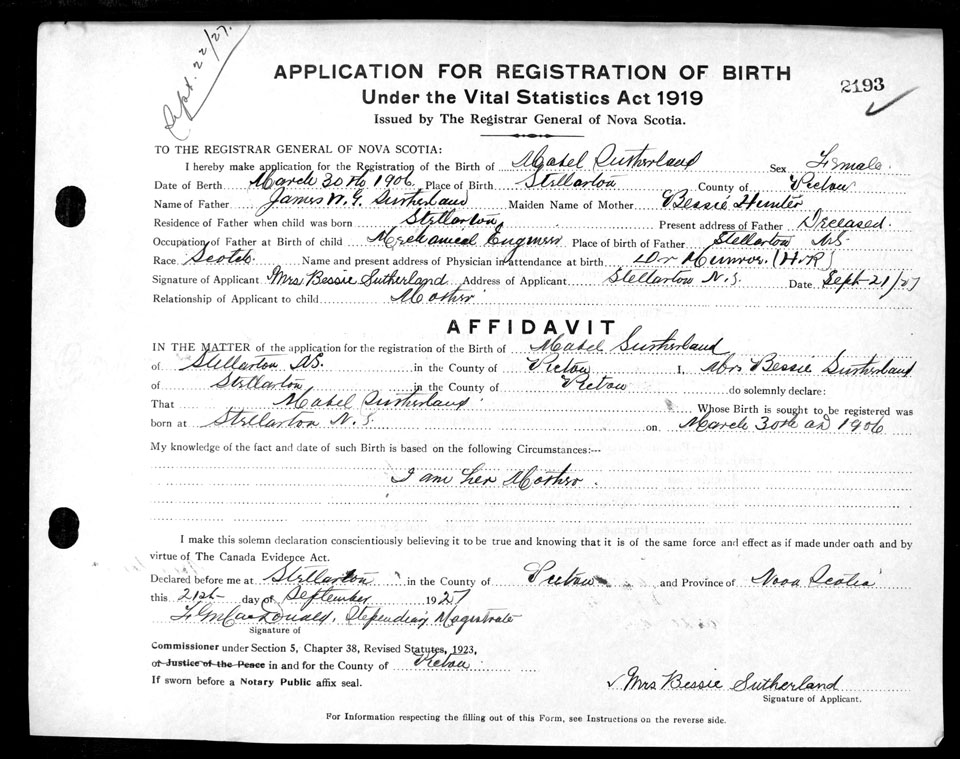 Sept. 22/27.
APPLICATION FOR REGISTRATION OF BIRTH
2193
Under the Vital Statistics Act 1919
Issued by The Registrar General of Nova Scotia.
TO THE REGISTRAR GENERAL OF NOVA SCOTIA:
I hereby make application for the Registration of the Birth of Mabel Sutherland Sex Female.
Date of Berth March 30th 1906 Place of Birth Stellarton County of Pictou
Name of Father James W. G. Sutherland Maiden Name of Mother Bessie Hunter
Residence of Father when child was born Stellarton Present address of Father Deceased.
Occupation of Father at Birth of child Mechanical Engineer Place of birth of Father Stellarton N.S.
Race Scotch Name and present address of Physician in attendance at birth Dr Munroe. (H.R)
Signature of Applicant Mrs Bessie Sutherland Address of Applicant Stellarton N.S. Date Sept 21/27
Relationship of Applicant to child Mother
AFFIDAVIT
IN THE MATTER of the application for the registration of the Birth of Mabel Sutherland
of Stellarton N.S. in the County of Pictou I, Mrs Bessie Sutherland
of Stellarton in the County of Pictou do solemnly declare:
That Mabel Sutherland Whose Birth is sought to be registered was
born at Stellarton N.S. on March 30th AD 1906
My knowledge of the fact and date of such Birth is based on the following Circumstances:--
I am her Mother.
I make this solemn declaration conscientiously believing it to be true and knowing that it is of the same force and effect as if made under oath and by
virtue of The Canada Evidence Act.
Declared before me at Stellarton in the County of Pictou and Province of Nova Scotia
this 21st day of September 1927
MacDonald, Stipendiary Magistrate
Signature of
Commissioner under Section 5, Chapter 38, Revised Statutes, 1923,
or Justice of the Peace in and for the County of Pictou
If sworn before a Notary Public affix seal.
Mrs Bessie Sutherland
Signature of Applicant.
For Information respecting the filling out of this Form, see Instructions on the reverse side.